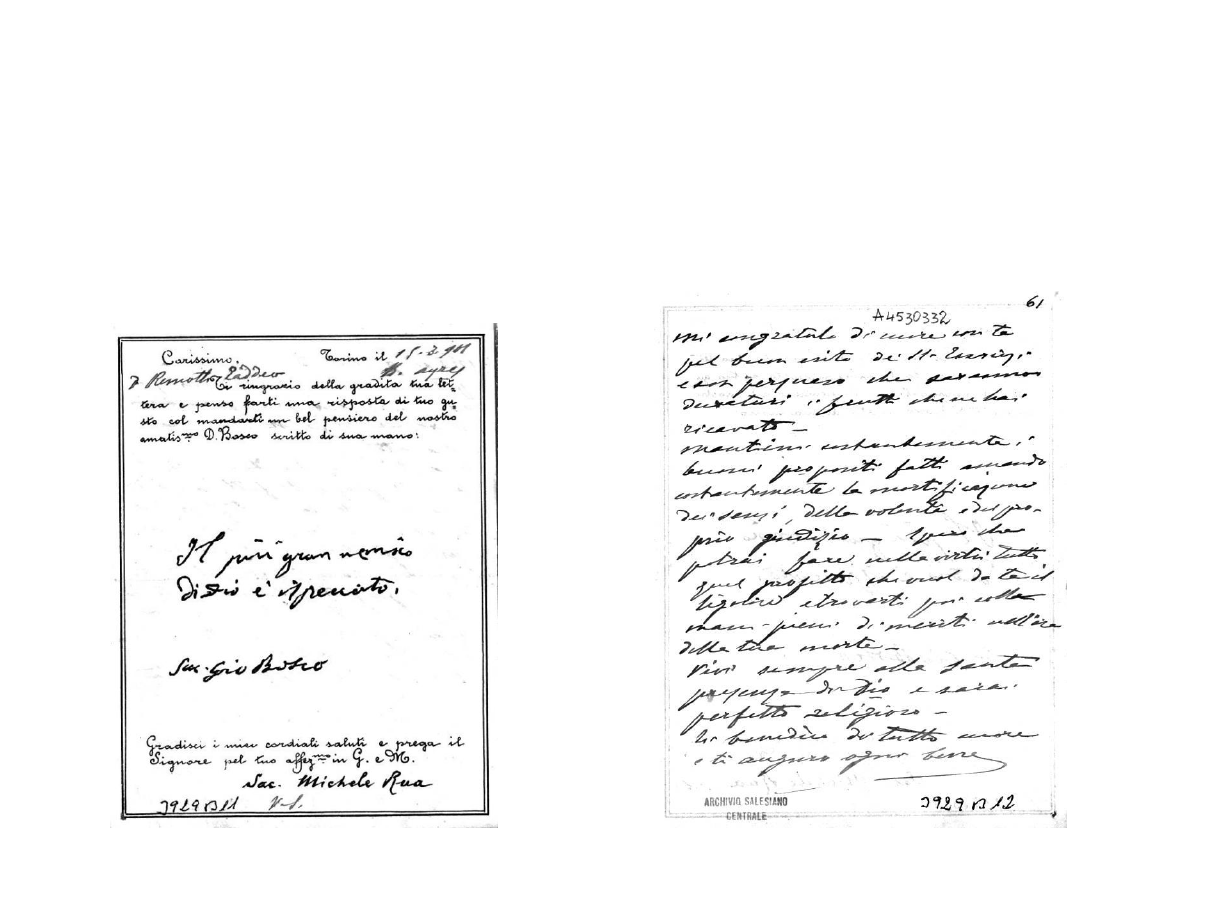 Carissimo, Torino il 15-2-901
D. Remotti Taddeo B. ayres
Ti ringrazio della gradita tua let-
tera e penso farti una risposta di tuo gu-
sto col mandarti un bel pensiero del nostro
amatis.mo D. Bosco scritto di sua mano:
Il più gran nemico
di Dio è il peccato.
Sac. Gio Bosco
Gradisci i miei cordiali saluti e prega il
Signore pel tuo affez.mo in G. e M.
Sac. Michele Rua
3929 B 11 V-S.
61
A4530332
mi congratulo di cuore con te
pel buon esito dei St. Esercizi
e son persuaso che saranno
duraturi i frutti che ne hai
ricavato –
mantieni costantemente i
buoni propositi fatti amando
costantemente la mortificazione
dei sensi, della volontà e del pro-
prio giudizio – Spero che
potrai fare nella virtù tutto
quel profitto che vuol da te il
Signore e trovarti poi colle
mani piene di meriti nell'ora
della tua morte –
Vivi sempre alla santa
presenza di Dio e sarai
perfetto religioso –
Ti benedico di tutto cuore
e ti auguro ogni bene
ARCHIVIO SALESIANO
CENTRALE
3929 B 12